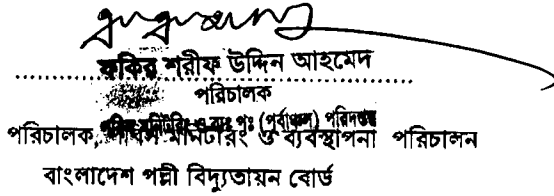 ফকির শরীফ উদ্দিন আহমেদ
পরিচালক
(পূর্বাঞ্চল) পরিদপ্তর
পরিচালক, মনিটরিং ও ব্যবস্থাপনা পরিচালন
বাংলাদেশ পল্লী বিদ্যুতায়ন বোর্ড